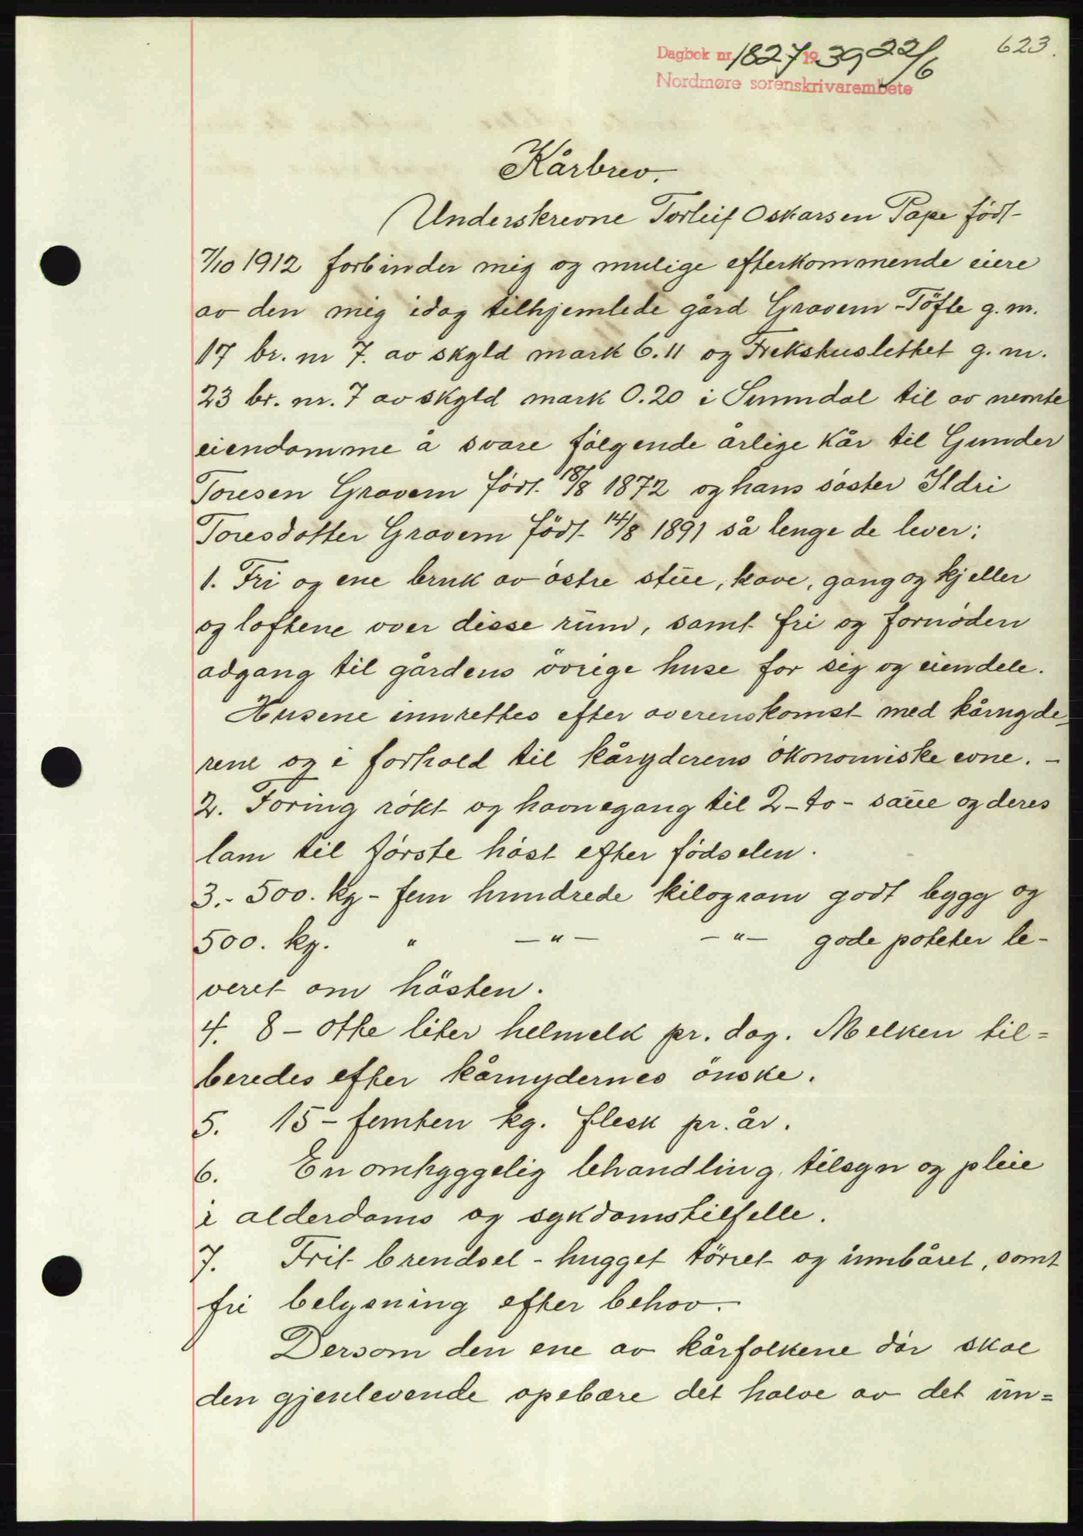 623.
Dagbok nr. 1827 1939 22/6
Nordmøre sorenskrivarembete
Kårbrev.
Underskrevne Torleif Oskarsen Pape født
7/10 1912 forbinder mig og mulige efterkommende eiere
av den mig idag tilhjemlede gård Gravem-Töfte g. nr.
17 br. nr 7. av skyld mark 6.11 og Frekshuslettet g. nr.
23 br. nr. 7 av skyld mark 0.20 i Sunndal til av nemte
eiendomme å svare fölgende årlige kår til Gunder
Toresen Gravem født 18/8 1872 og hans söster Ildri
Toresdotter Gravem födt 14/8 1891 så lenge de lever:
1. Fri og ene bruk av östre stue, kove, gang og kjeller
og loftene over disse rum, samt fri og fornöden
adgang til gårdens övrige huse for sig og eiendele.
Husene innrettes efter overenskomst med kårnyde-
rene og i forhold til kåryderens ökonomiske evne. -
2. Foring rökt og havnegang til 2-to- saue og deres
lam til förste höst efter födselen.
3.- 500. kg - fem hundrede kilogram godt bygg og
500. kg. " -"- -"- gode poteter le-
veret om hösten.
4. 8 - otte liter helmelk pr. dag. Melken til=
beredes efter kårnydernes önske.
5. 15 - femten kg. flesk pr. år.
6. En omhyggelig behandling, tilsyn og pleie
i alderdoms og sykdomstilfelle.
7. Frit brendsel - hugget törret og innbåret, samt
fri belysning efter behov.-
Dersom den ene av kårfolkene dör skal
den gjenlevende opebære det halve av det un=